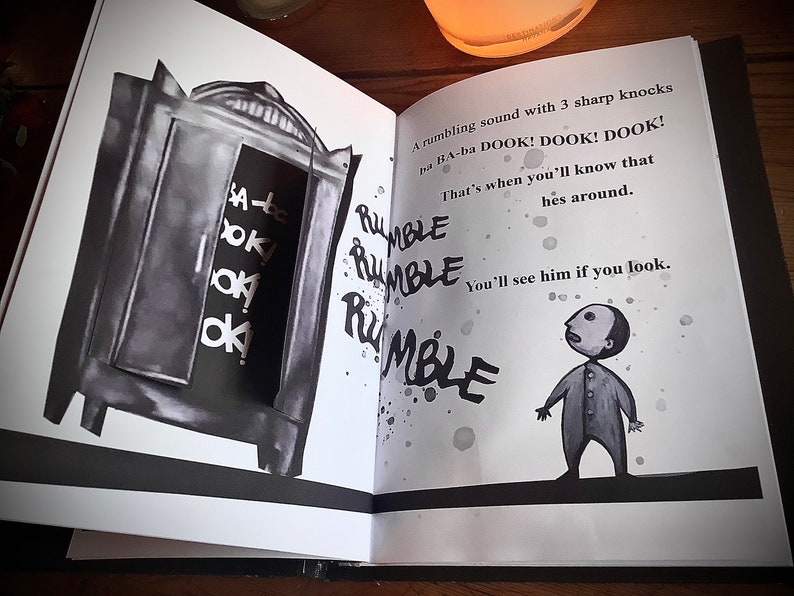 A-ba
OK!
OK!
OK!
RUMBLE
RUMBLE
RUMBLE
A rumbling sound with 3 sharp knocks
ba BA-ba DOOK! DOOK! DOOK!
That's when you'll know that
hes around.
You'll see him if you look.